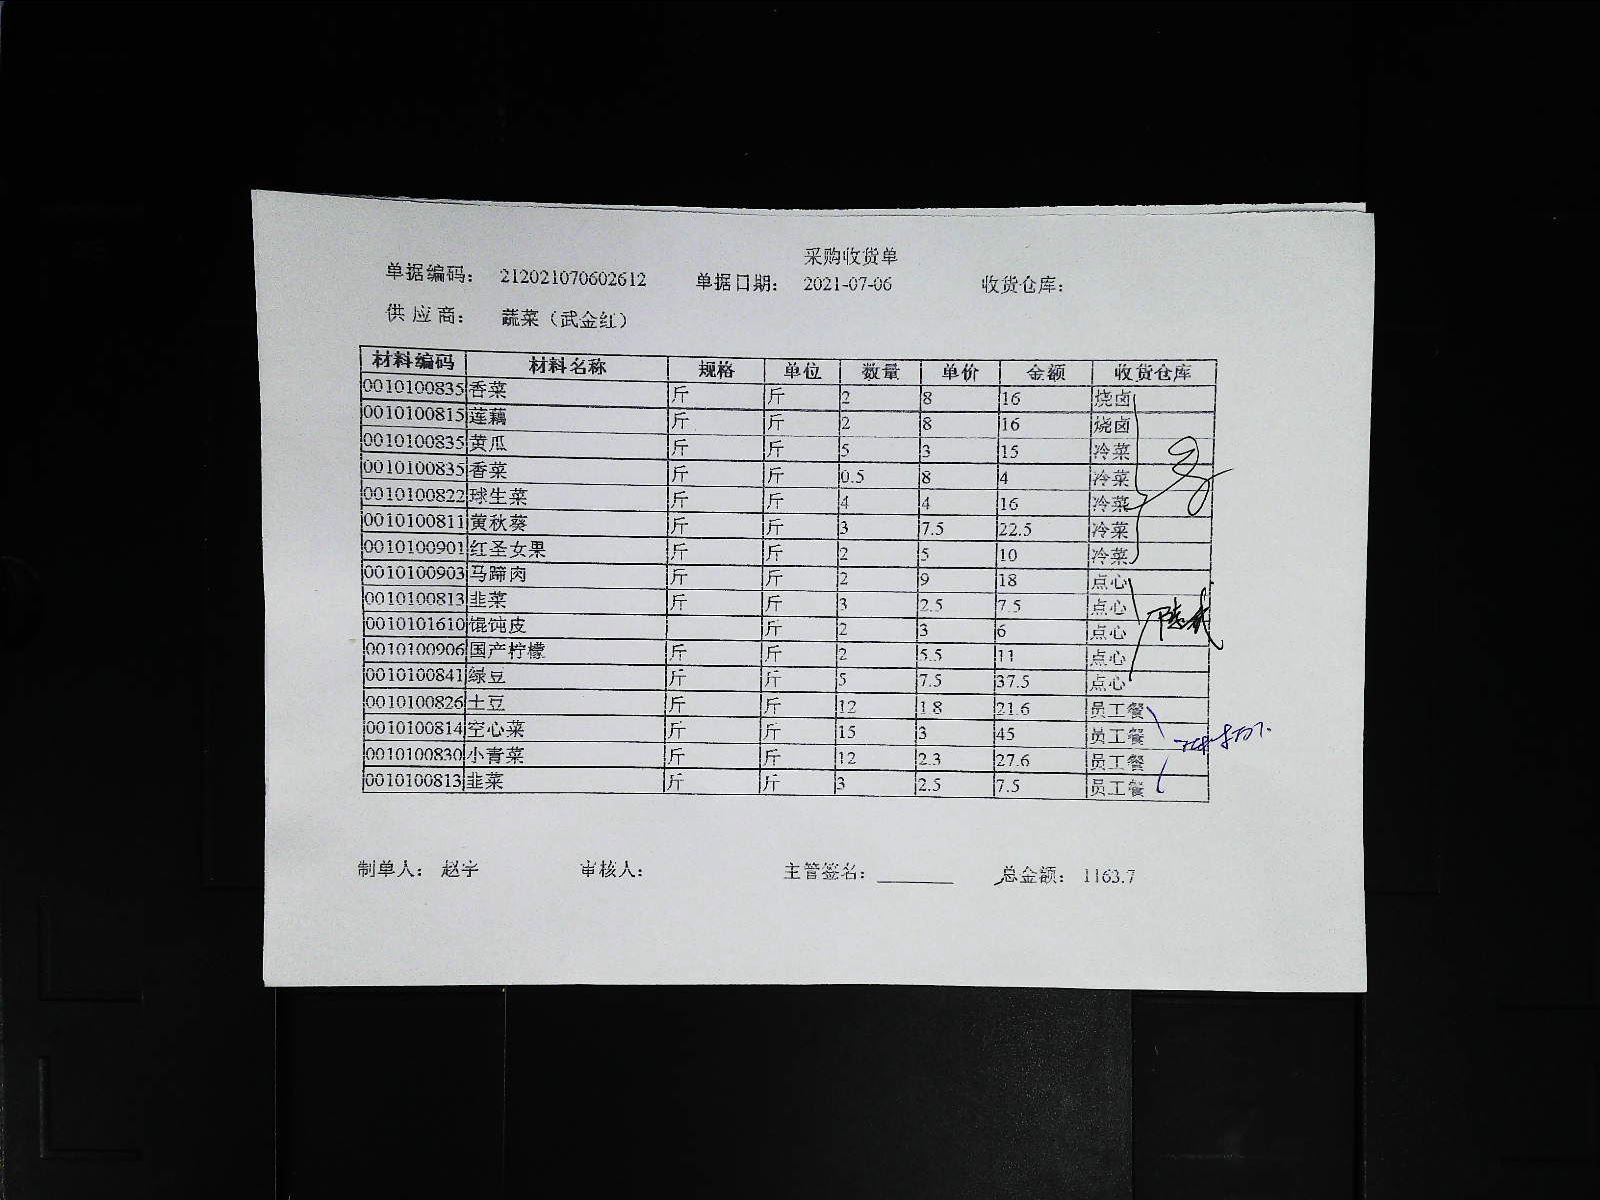 采购收货单
单据编码： 212021070602612 单据日期： 2021-07-06 收货仓库：
供 应 商： 蔬菜（武金红）
材料编码 材料名称 规格 单位 数量 单价 金额 收货仓库
0010100835 香菜 斤 斤 2 8 16 烧卤
0010100815 莲藕 斤 斤 2 8 16 烧卤
0010100835 黄瓜 斤 斤 5 3 15 冷菜
0010100835 香菜 斤 斤 0.5 8 4 冷菜
0010100822 球生菜 斤 斤 4 4 16 冷菜
0010100811 黄秋葵 斤 斤 3 7.5 22.5 冷菜
0010100901 红圣女果 斤 斤 2 5 10 冷菜
0010100903 马蹄肉 斤 斤 2 9 18 点心
0010100813 韭菜 斤 斤 3 2.5 7.5 点心
0010101610 馄饨皮 斤 2 3 6 点心
0010100906 国产柠檬 斤 斤 2 5.5 11 点心
0010100841 绿豆 斤 斤 5 7.5 37.5 点心
0010100826 土豆 斤 斤 12 1.8 21.6 员工餐
0010100814 空心菜 斤 斤 15 3 45 员工餐
0010100830 小青菜 斤 斤 12 2.3 27.6 员工餐
0010100813 韭菜 斤 斤 3 2.5 7.5 员工餐
制单人： 赵宇 审核人： 主管签名： 总金额： 1163.7